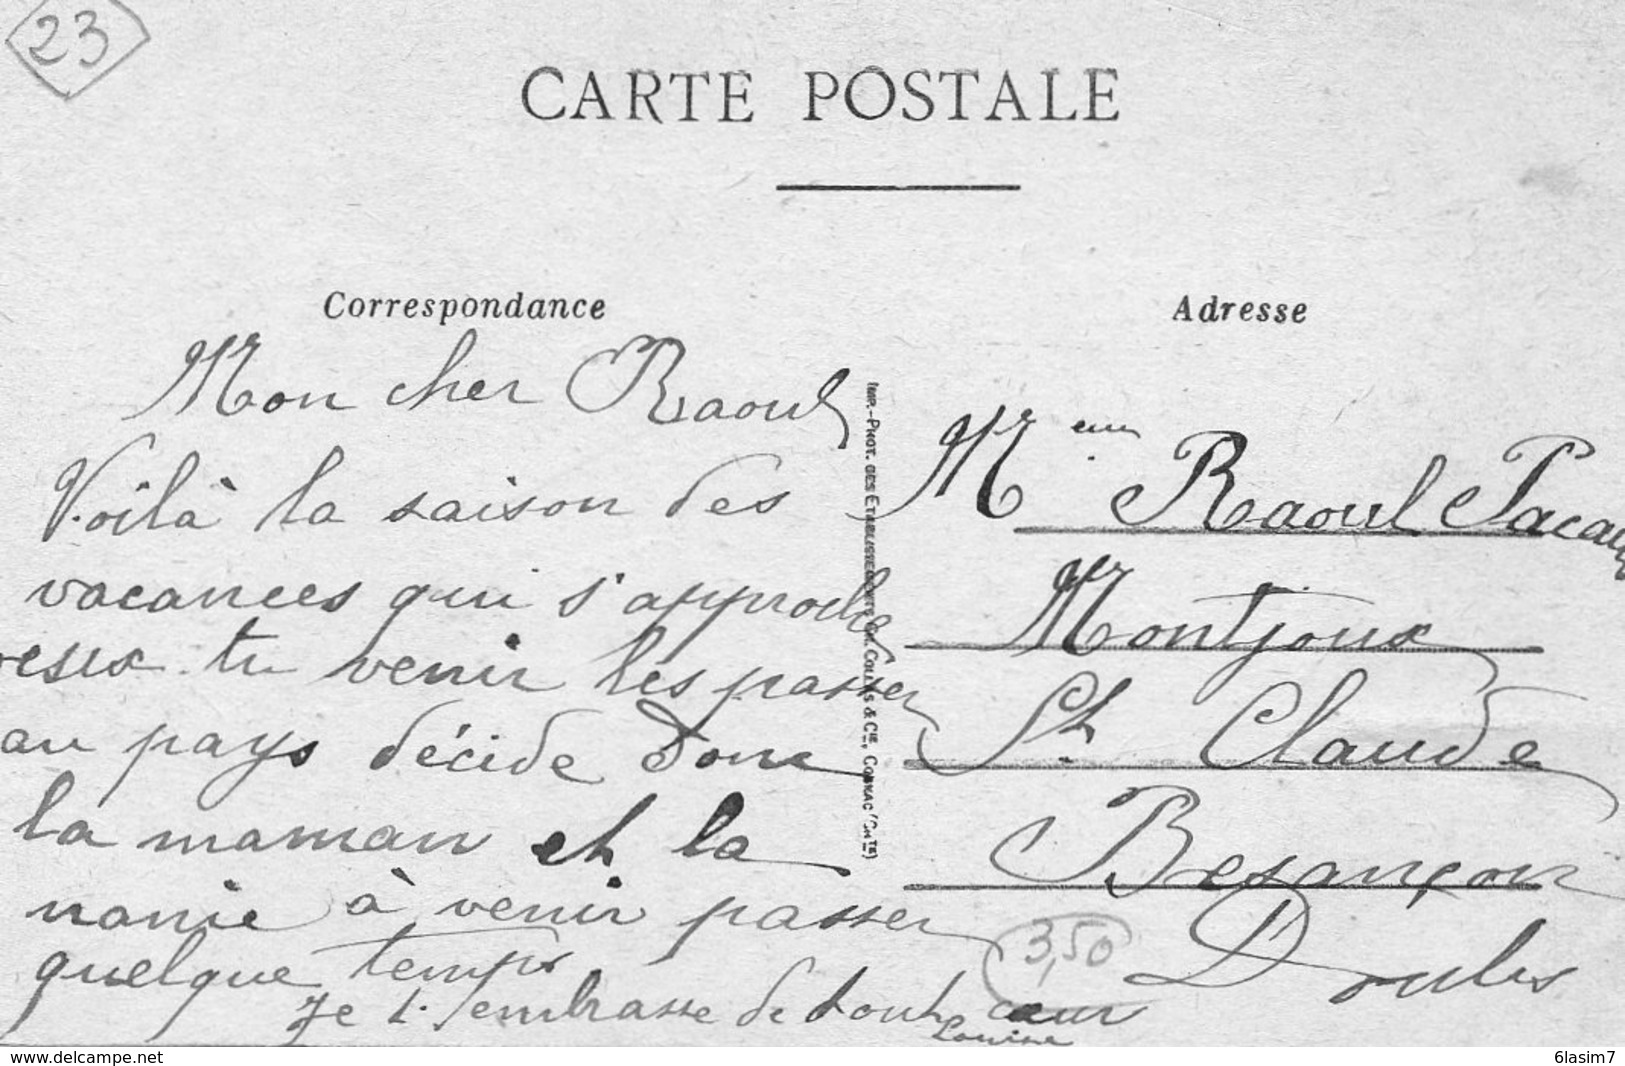 23
CARTE POSTALE
Correspondance
Mon cher Raoul
Voilà la saison des
vacances qui s'approche
veux tu venir les passer
au pays décide donc
la maman et la
nanie à venir passer
quelque temps
Je t'embrasse de tout cœur
Louise
IMP.-PHOT. DES ÉTABLISSEMENTS CH. COLLAS & CIE, COGNAC (CHTE)
Adresse
Raoul
Montjoux
St. Claude
Besançon
Doubs
3,50
www.delcampe.net
6lasim7